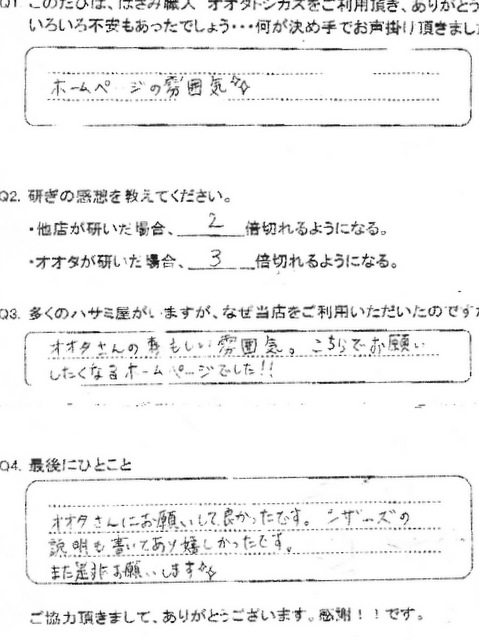 Q1 このたびは、はさみ職人 オオタトシカズをご利用頂き、ありがとう
いろいろ不安もあったでしょう・・・何が決め手でお声掛け頂きまし
ホームページの雰囲気☆
Q2. 研ぎの感想を教えてください。
・他店が研いだ場合、 2 倍切れるようになる。
・オオタが研いだ場合、 3 倍切れるようになる。
Q3. 多くのハサミ屋がいますが、なぜ当店をご利用いただいたのです
オオタさんの 雰囲気。こちらでお願い
したくなるホームページでした!!
Q4. 最後にひとこと
オオタさんにお願いして良かったです。シザーズの
説明も書いてあり嬉しかったです。
また是非お願いします☆
ご協力頂きまして、ありがとうございます。感謝！！です。